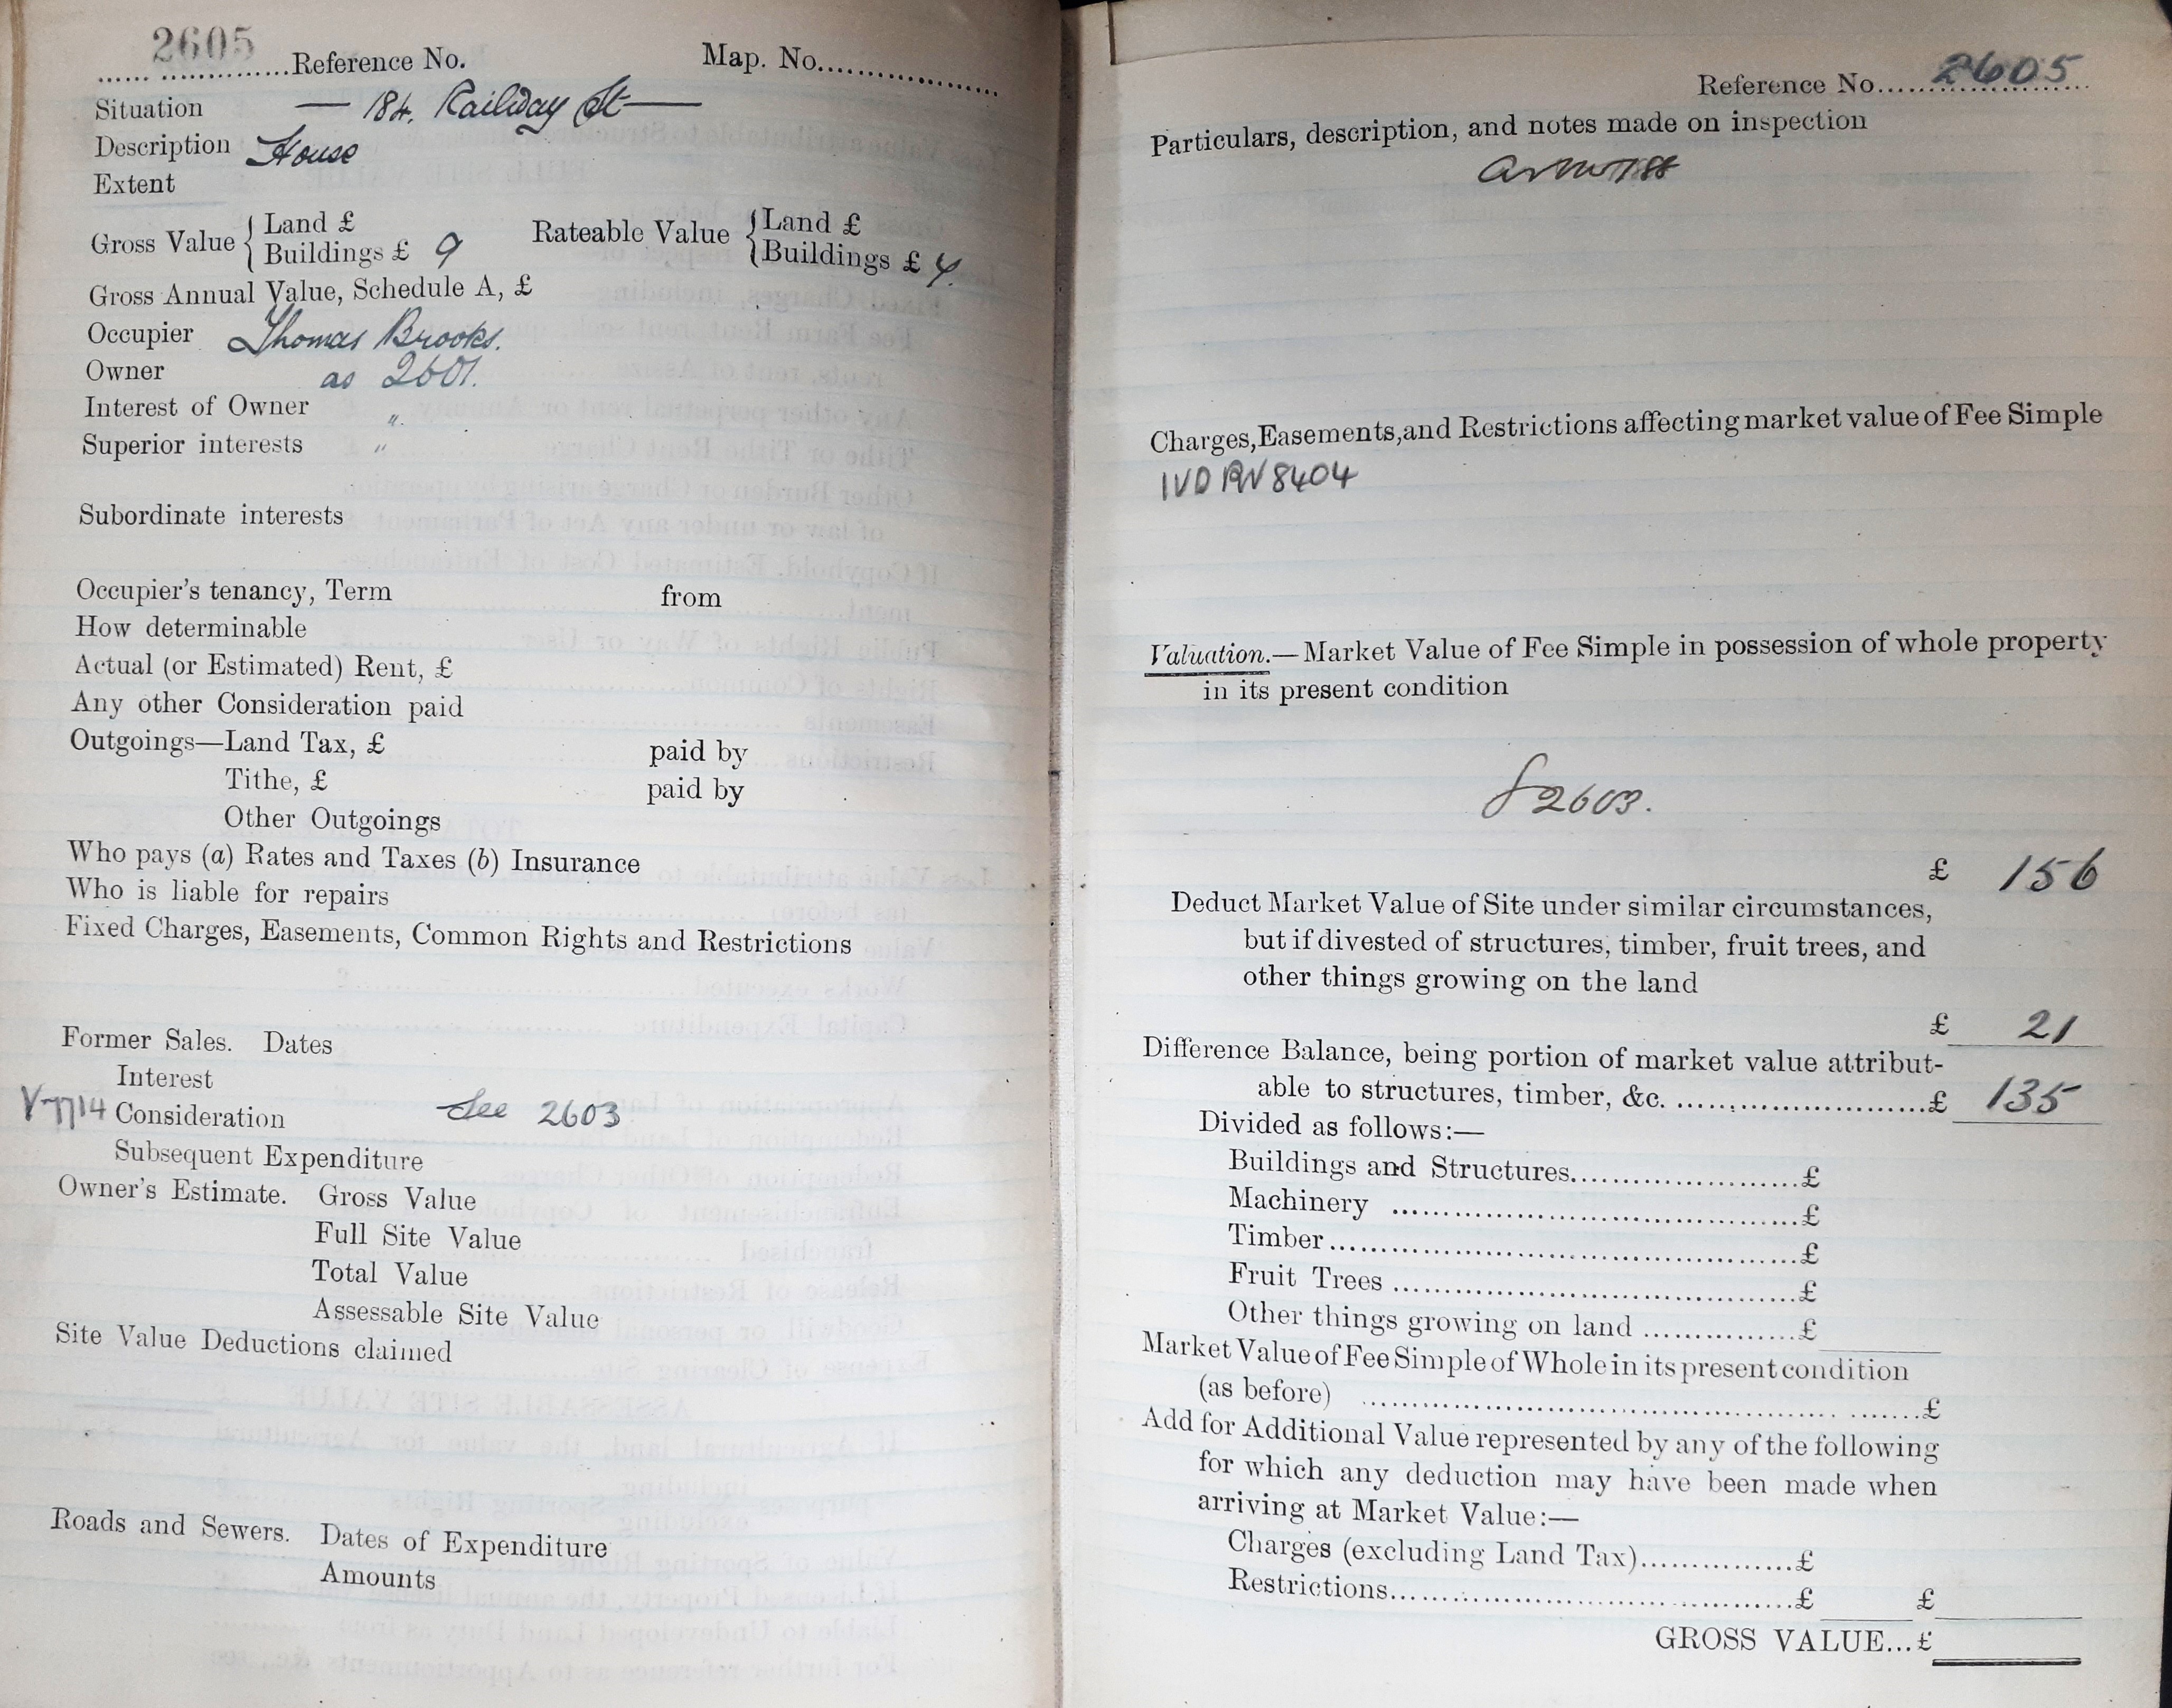 2605
...... ..............Reference No. Map. No..................
Situation — 184, Railway St —
Description House
Extent
Gross Value { Land £ Rateable Value { Land £
Buildings £ 9 Buildings £
Gross Annual Value, Schedule A, £
Occupier Thomas Brooks.
Owner as 2601.
Interest of Owner "
Superior interests "
Subordinate interests
Occupier's tenancy, Term from
How determinable
Actual (or Estimated) Rent, £
Any other Consideration paid
Outgoings—Land Tax, £ paid by
Tithe, £ paid by
Other Outgoings
Who pays (a) Rates and Taxes (b) Insurance
Who is liable for repairs
Fixed Charges, Easements, Common Rights and Restrictions
Former Sales. Dates
Interest
V7714 Consideration See 2603
Subsequent Expenditure
Owner's Estimate. Gross Value
Full Site Value
Total Value
Assessable Site Value
Site Value Deductions claimed
Roads and Sewers. Dates of Expenditure
Amounts
Reference No. 2605
Particulars, description, and notes made on inspection
Charges, Easements, and Restrictions affecting market value of Fee Simple
IVD RV 8404
Valuation.—Market Value of Fee Simple in possession of whole property
in its present condition
2603.
£ 156
Deduct Market Value of Site under similar circumstances,
but if divested of structures, timber, fruit trees, and
other things growing on the land
£ 21
Difference Balance, being portion of market value attribut-
able to structures, timber, &c. ..........................£ 135
Divided as follows:—
Buildings and Structures.......................£
Machinery .........................................£
Timber...............................................£
Fruit Trees .........................................£
Other things growing on land ...............£
Market Value of Fee Simple of Whole in its present condition
(as before) .....................................................£
Add for Additional Value represented by any of the following
for which any deduction may have been made when
arriving at Market Value:—
Charges (excluding Land Tax)...............£
Restrictions.........................................£ £
GROSS VALUE...£